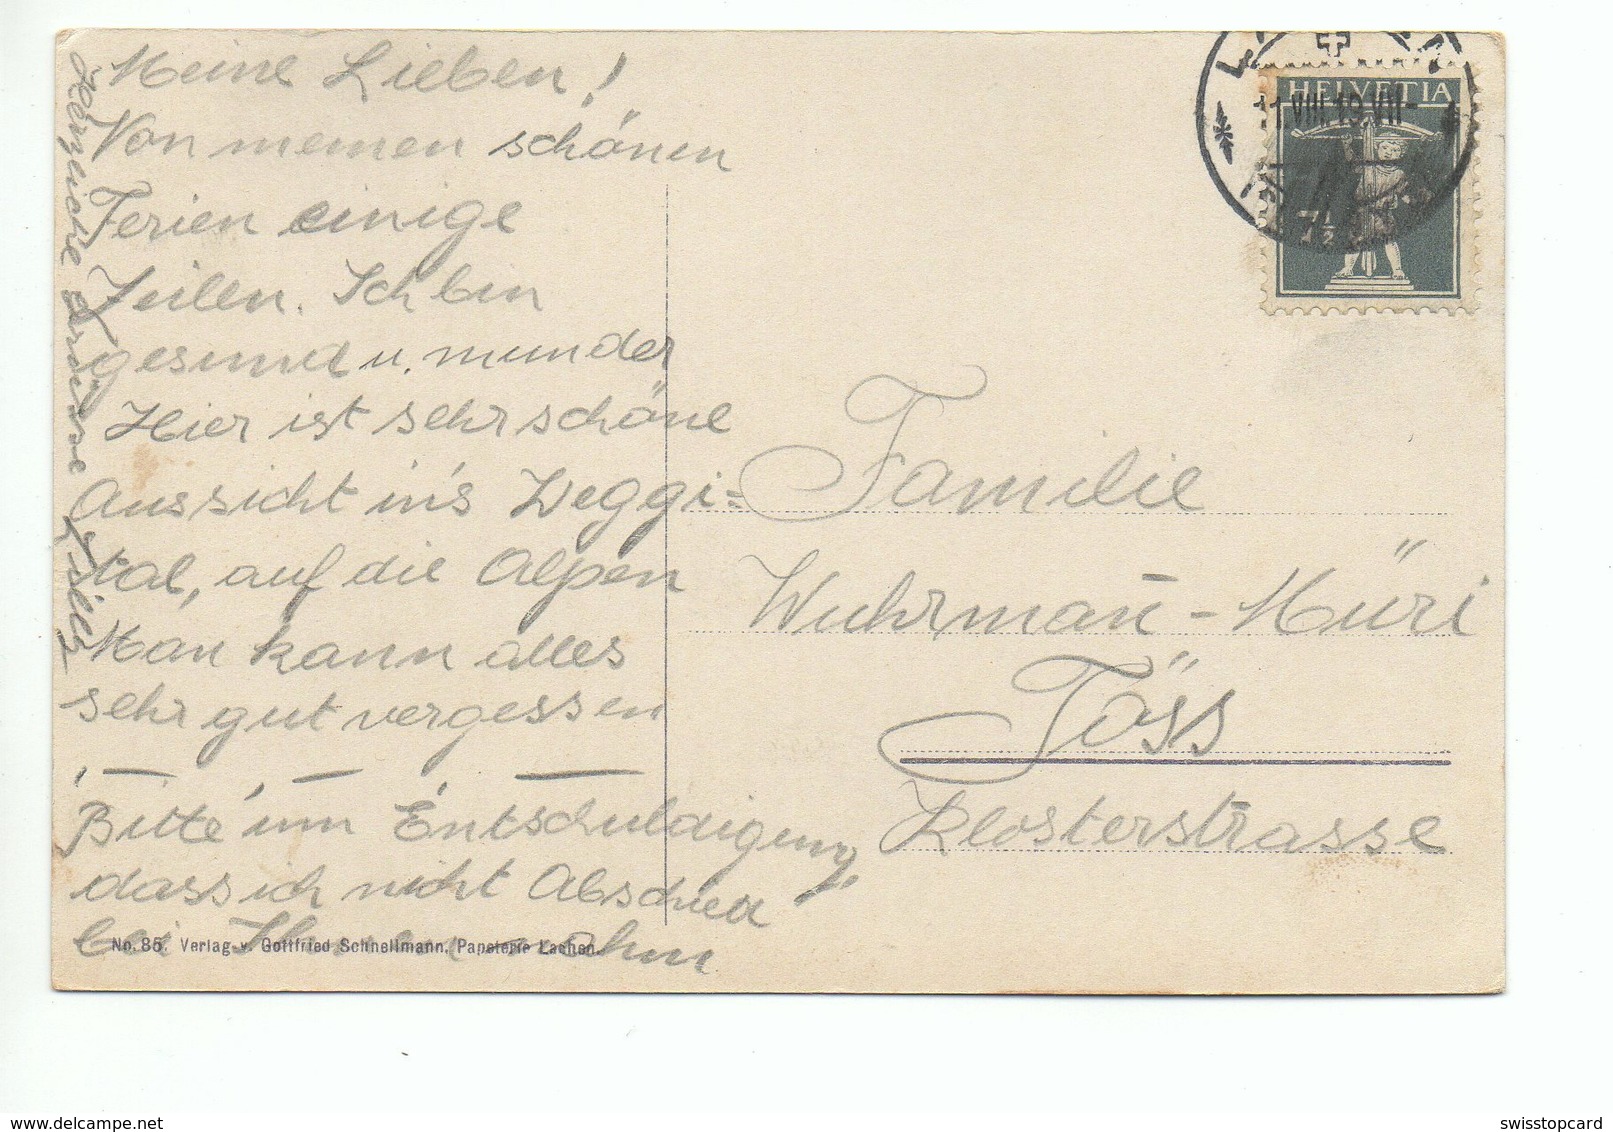 Meine Lieben!
Von meinen schönen
Ferien einige
Zeilen. Ich bin
gesund u. munder
Hier ist sehr schöne
Aussicht in's Weggi=
tal, auf die Alpen
Man kann alles
sehr gut vergessen
Bitte um Entschuldigung,
dass ich nicht Abschied
bei Ihnen nahm
Herzliche Grüsse
No. 85. Verlag v. Gottfried Schnellmann, Papeterie Lachen.
HELVETIA
11.VIII.19.VII-
7½
Familie
Wuhrman̄-Müri
Töss
Klosterstrasse
swisstopcard